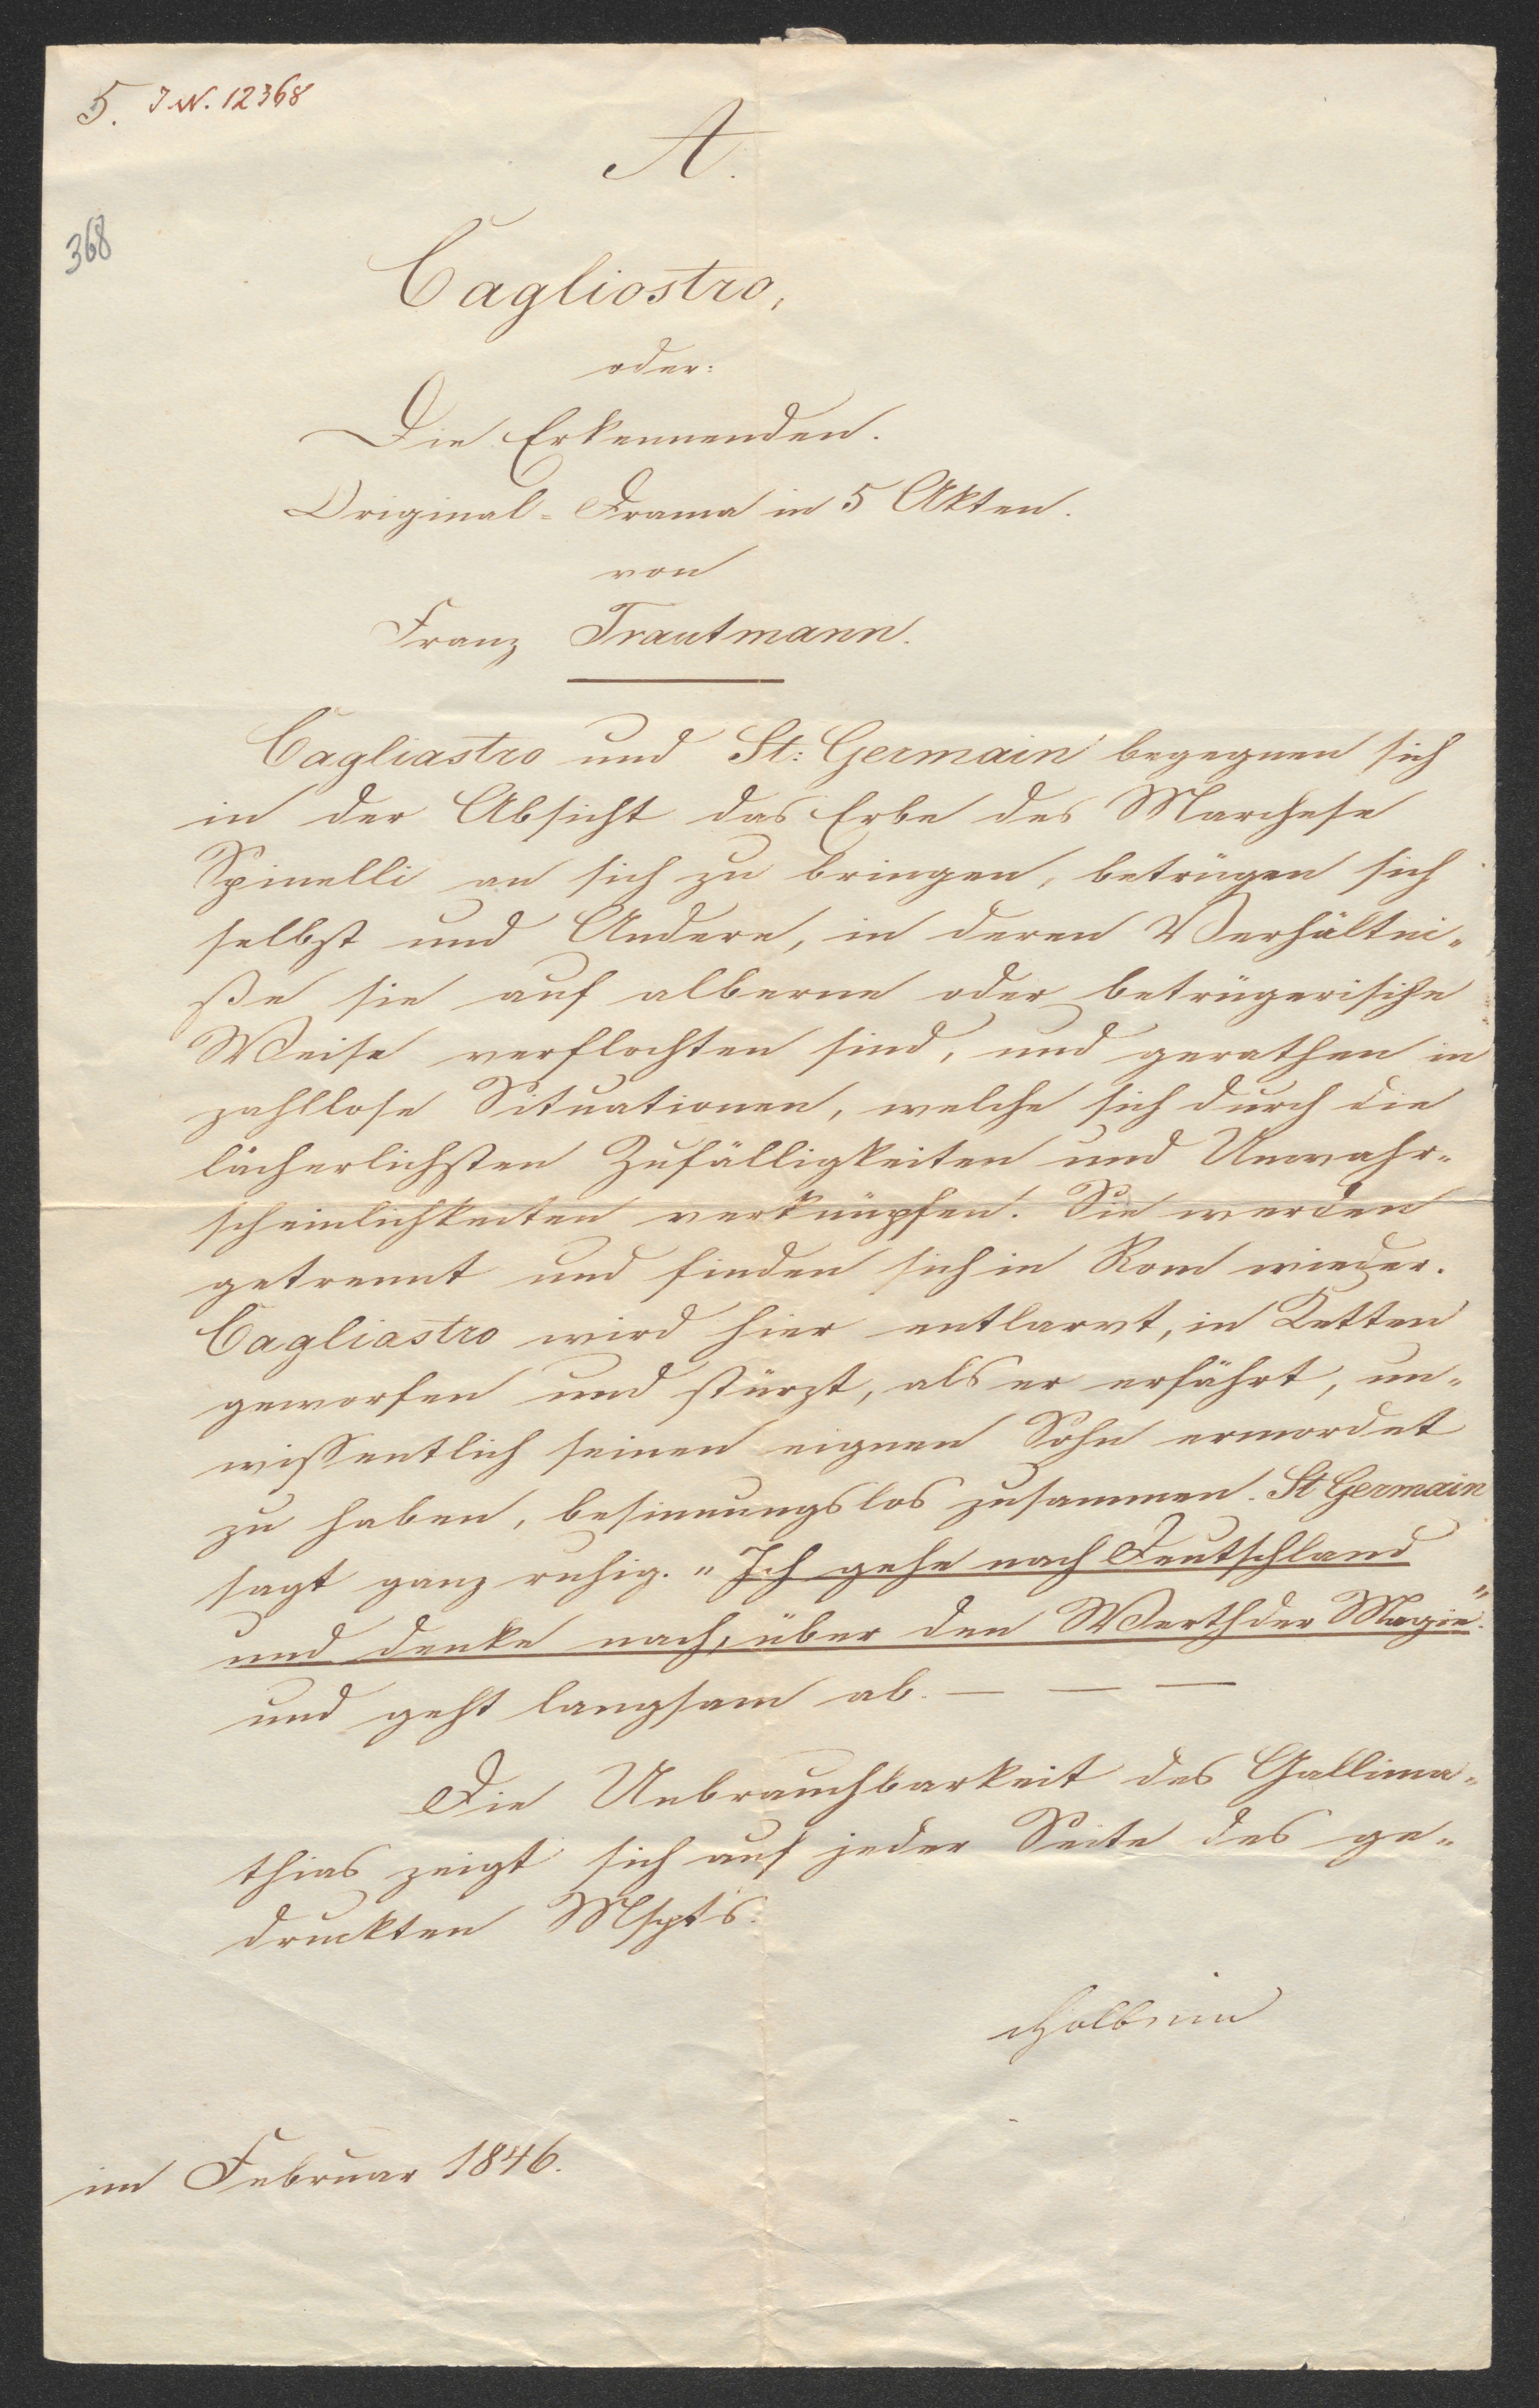 5. I.N. 12368
A.
368
Cagliostro,
oder:
Die Erkennenden.
Original-Drama in 5 Akten.
von
Franz Trautmann.
Cagliastro und St: Germain begegnen sich
in der Absicht das Erbe des Marchese
Spinelli an sich zu bringen, betrügen sich
selbst und Andere, in deren Verhältni-
ße sie auf alberne oder betrügerische
Weise verflochten sind, und gerathen in
zahllose Situationen, welche sich durch die
lächerlichsten Zufälligkeiten und Unwahr-
scheinlichkeiten verknüpfen. Sie werden
getrennt und finden sich in Rom wieder.
Cagliastro wird hier entlarvt, in Ketten
geworfen und stürzt, als er erfährt, un-
wissentlich seinen eignen Sohn ermordet
zu haben, besinnungslos zusammen. St Germain
sagt ganz ruhig. "Ich gehe nach Deutschland
und denke nach, über den Werth der Magie."
und geht langsam ab. — — —
Die Unbrauchbarkeit des Gallima-
thias zeigt sich auf jeder Seite des ge-
druckten Mspts.
Holbein
im Februar 1846.